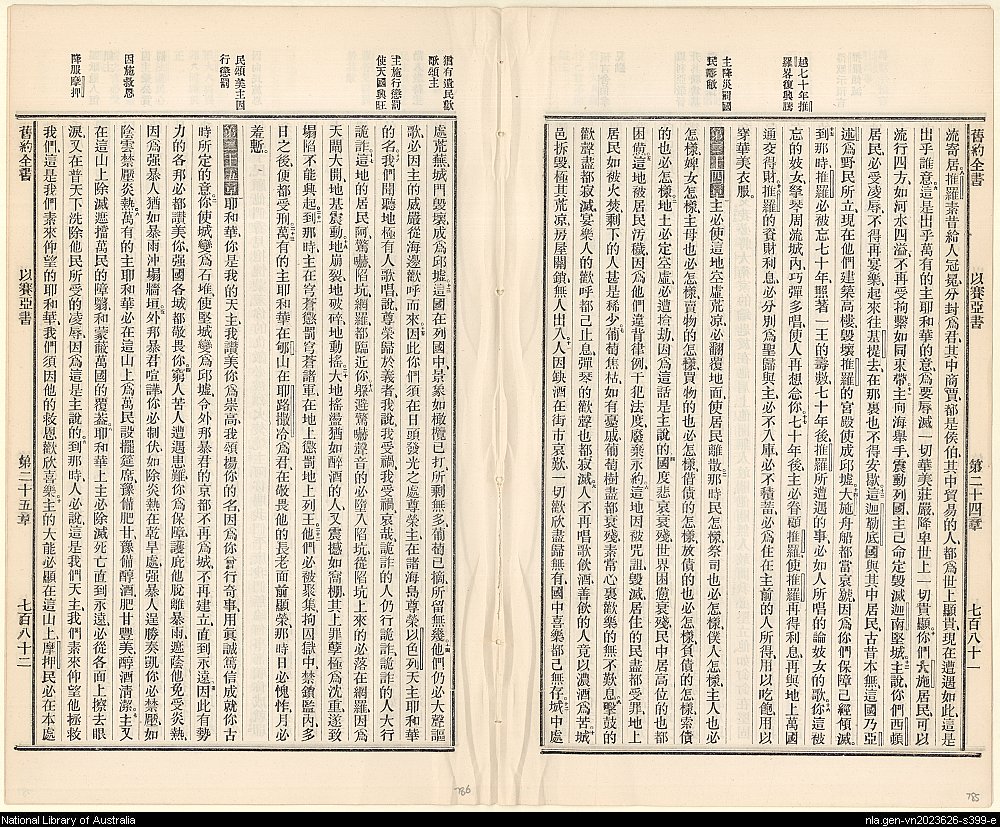 越七十年推
羅畧復興旺
主降災罰國
民離散
舊約全書
以賽亞書
第二十四章
七百八十一
流寄居推羅素昔給人冠冕分封爲君其中商賈都是侯伯其中貿易的人都爲世上顯貴現在遭遇如此這是
出乎誰意這是出乎萬有的主耶和華的意爲要辱滅一切華美莊嚴降卑世上一切貴顯你們大施居民可以
流行四方如河水四溢不再受拘繫如同束帶主向海舉手震動列國主己命定毀滅迦南堅城主說你們西頓
居民必受凌辱不得再宴樂起來往基提去在那裏也不得安歇這迦勒底國與其中居民古昔本無這國乃亞
述爲野民所立現在他們建築高樓毀壞推羅的宮殿使成邱墟大施舟船都當哀號因爲你們保障己經傾滅
到那時推羅必被忘七十年照著一王的壽數七十年後推羅所遭遇的事必如人所唱的論妓女的歌你這被
忘的妓女拏琴周流城內巧彈多唱使人再想念你七十年後主必眷顧推羅使推羅再得利息再與地上萬國
通交得財推羅的貲財利息必分別爲聖歸與主必不入庫必不積蓄必爲住在主前的人所得用以吃飽用以
穿華美衣服
第二十四章主必使這地空虛荒凉必翻覆地面使居民離散那時民怎樣祭司也必怎樣僕人怎樣主人也必
怎樣婢女怎樣主母也必怎樣賣物的怎樣買物的也必怎樣借債的怎樣放債的也必怎樣負債的怎樣索債
的也必怎樣地土必定空虛必遭搶劫因爲這話是主說的國度悲哀衰殘世界困憊衰殘民中居高位的也都
困憊這地被居民汚穢因爲他們違背律例干犯法度廢棄永約這地因被咒詛毀滅居住的民盡都受罪地上
居民如被火焚剩下的人甚是稀少葡萄焦枯如有憂戚葡萄樹盡都衰殘素常心裏歡樂的無不歎息擊鼓的
歡聲盡都寂滅宴樂人的歡呼都己止息彈琴的歡聲也都寂滅人不再唱歌飲酒善飲的人竟以濃酒爲苦城
邑拆毀極其荒凉房屋關鎖無人出入人因缺酒在街市哀歎一切歡欣盡歸無有國中喜樂都己無存城中處
猶有遺民歡
歌頌主
主施行懲罰
使天國興旺
民頌美主因
行懲罰
因施救恩
降服摩押
處荒蕪城門毀壞成爲邱墟這國在列國中景象如橄欖已打所剩無多葡萄已摘所留無幾他們仍必大聲謳
歌必因主的威嚴從海邊歡呼而來因此你們須在日頭發光之處尊榮主在諸海島尊榮以色列天主耶和華
的名我們聞聽地極有人歌唱說尊榮歸於義者我說我受禍我受禍哀哉詭詐的人仍行詭詐詭詐的人大行
詭詐這地的居民阿驚嚇陷坑網羅都臨近你躲避驚嚇聲音的必墮入陷坑從陷坑上來的必落在網羅因爲
天開大開地基震動地崩裂地破碎地動搖大地搖盪猶如醉酒的人又震撼如窩棚其上罪孽極爲沈重遂致
塌陷不能興起到那時主在穹蒼懲罰穹蒼諸軍在地上懲罰地上列王他們必被聚集拘囚獄中禁鎖監內多
日之後便都受刑萬有的主耶和華在郇山在耶路撒冷爲君在敬畏他的長老面前顯榮那時日必愧怍月必
羞慙
第二十五章耶和華你是我的天主我讚美你爲崇高我頌揚你的名因爲你曾行奇事用眞誠篤信成就你古
時所定的意你使城變爲石堆使堅城變爲邱墟令外邦暴君的京都不再爲城不再建立直到永遠因此有勢
力的各邦必都讚美你强國各城都敬畏你窮人苦人遭遇患難你爲保障護庇他脫離暴雨遮蔭他免受炎熱
因爲强暴人猶如暴雨沖塌牆垣外邦暴君喧譁你必制伏如除炎熱在乾旱處强暴人逞勝奏凱你必禁壓如
陰雲禁壓炎熱萬有的主耶和華必在這山上爲萬民設擺筵席豫備肥甘豫備醇酒肥甘豐美醇酒清潔主又
在這山上除滅遮擋萬民的障翳和蒙蔽萬國的覆蓋耶和華上主必除滅死亡直到永遠必從各面上擦去眼
淚又在普天下洗除他民所受的凌辱因爲這是主說的到那時人必說這是我們天主我們素來仰望他拯救
我們這是我們素來仰望的耶和華我們須因他的救恩歡欣喜樂主的大能必顯在這山上摩押民必在本處
舊約全書
以賽亞書
第二十五章
七百八十二
786
785
National Library of Australia
nla.gen-vn2023626-s399-e